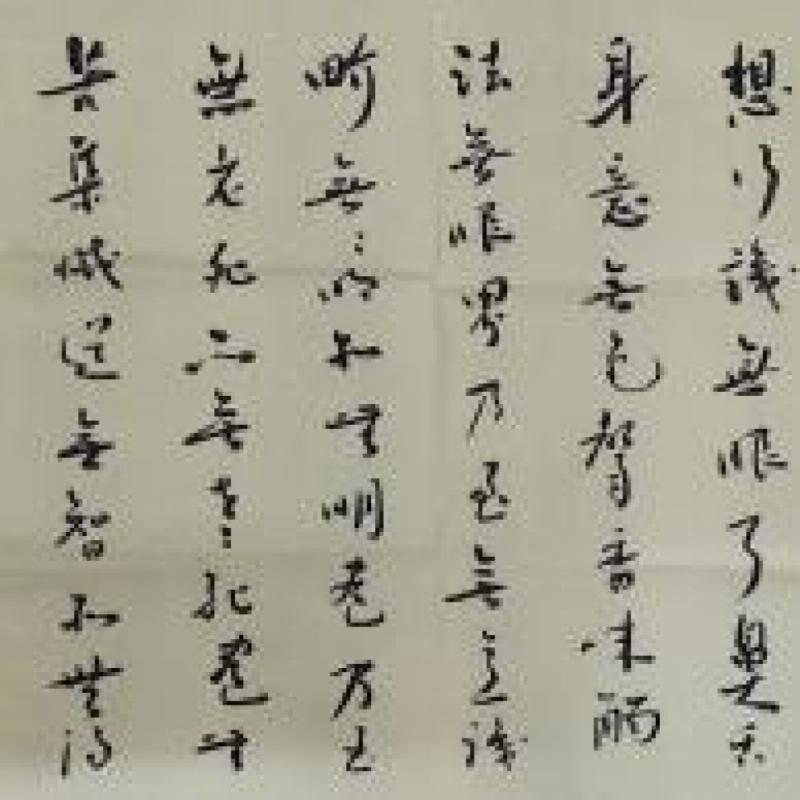 想行識無眼耳鼻舌
身意無色聲香味觸
法無眼界乃至無意識
界無〻明亦無明盡乃至
無老死亦無老死盡無
苦集滅道無智亦無得